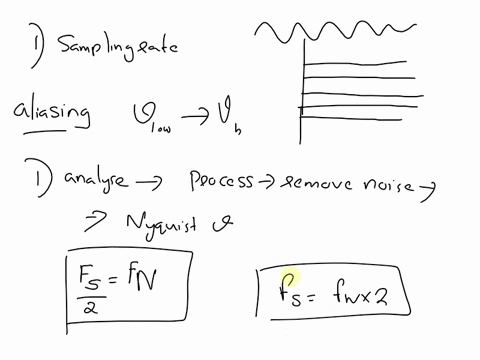 1) Sampling rate
aliasing ϑlow → ϑh
1) analyse → Process → remove noise →
⇒ Nyquist ϑ
Fs/2 = fN
fs = fN×2